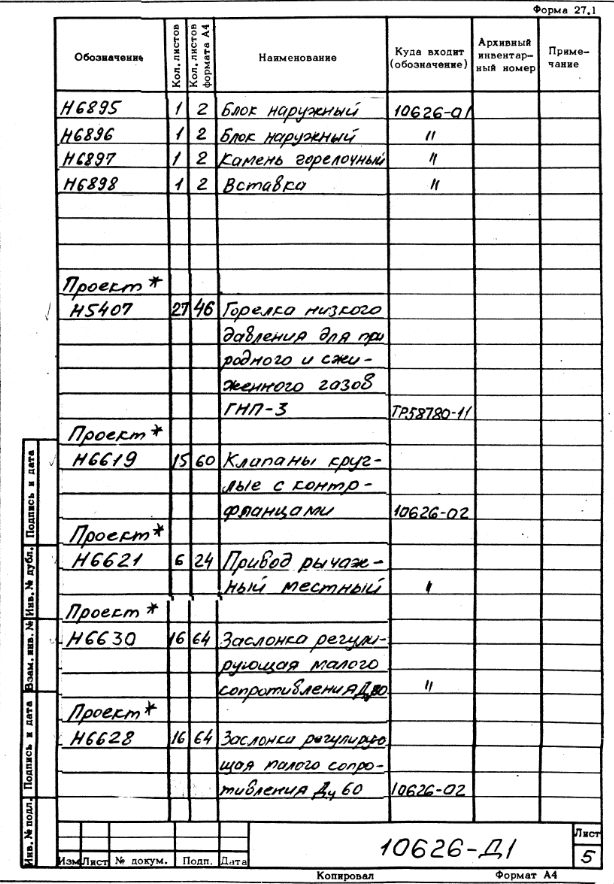 Форма 27.1
Обозначение Кол. листов Кол. листов формата А4 Наименование Куда входит (обозначение) Архивный инвентарный номер Примечание
Н6895 1 2 Блок наружный 10626-01
Н6896 1 2 Блок наружный "
Н6897 1 2 Камень горелочный "
Н6898 1 2 Вставка "
Проект *
Н5407 27 46 Горелка низкого
давления для при
родного и сжи-
женного газов
ГНП-3 ТР58780-11
Проект *
Н6619 15 60 Клапаны круг-
лые с контр-
фланцами 10626-02
Проект *
Н6621 6 24 Привод рычаж-
ный местный "
Проект *
Н6630 16 64 Заслонка регули-
рующая малого
сопротивления "
Проект *
Н6628 16 64 Заслонка регулирую
щая малого сопро-
тивления Ду 60 10626-02
Инв. № подл. Подпись и дата Взам. инв. № Инв. № дубл. Подпись и дата
Изм Лист № докум. Подп. Дата
10626-Д1
Лист
5
Копировал Формат А4